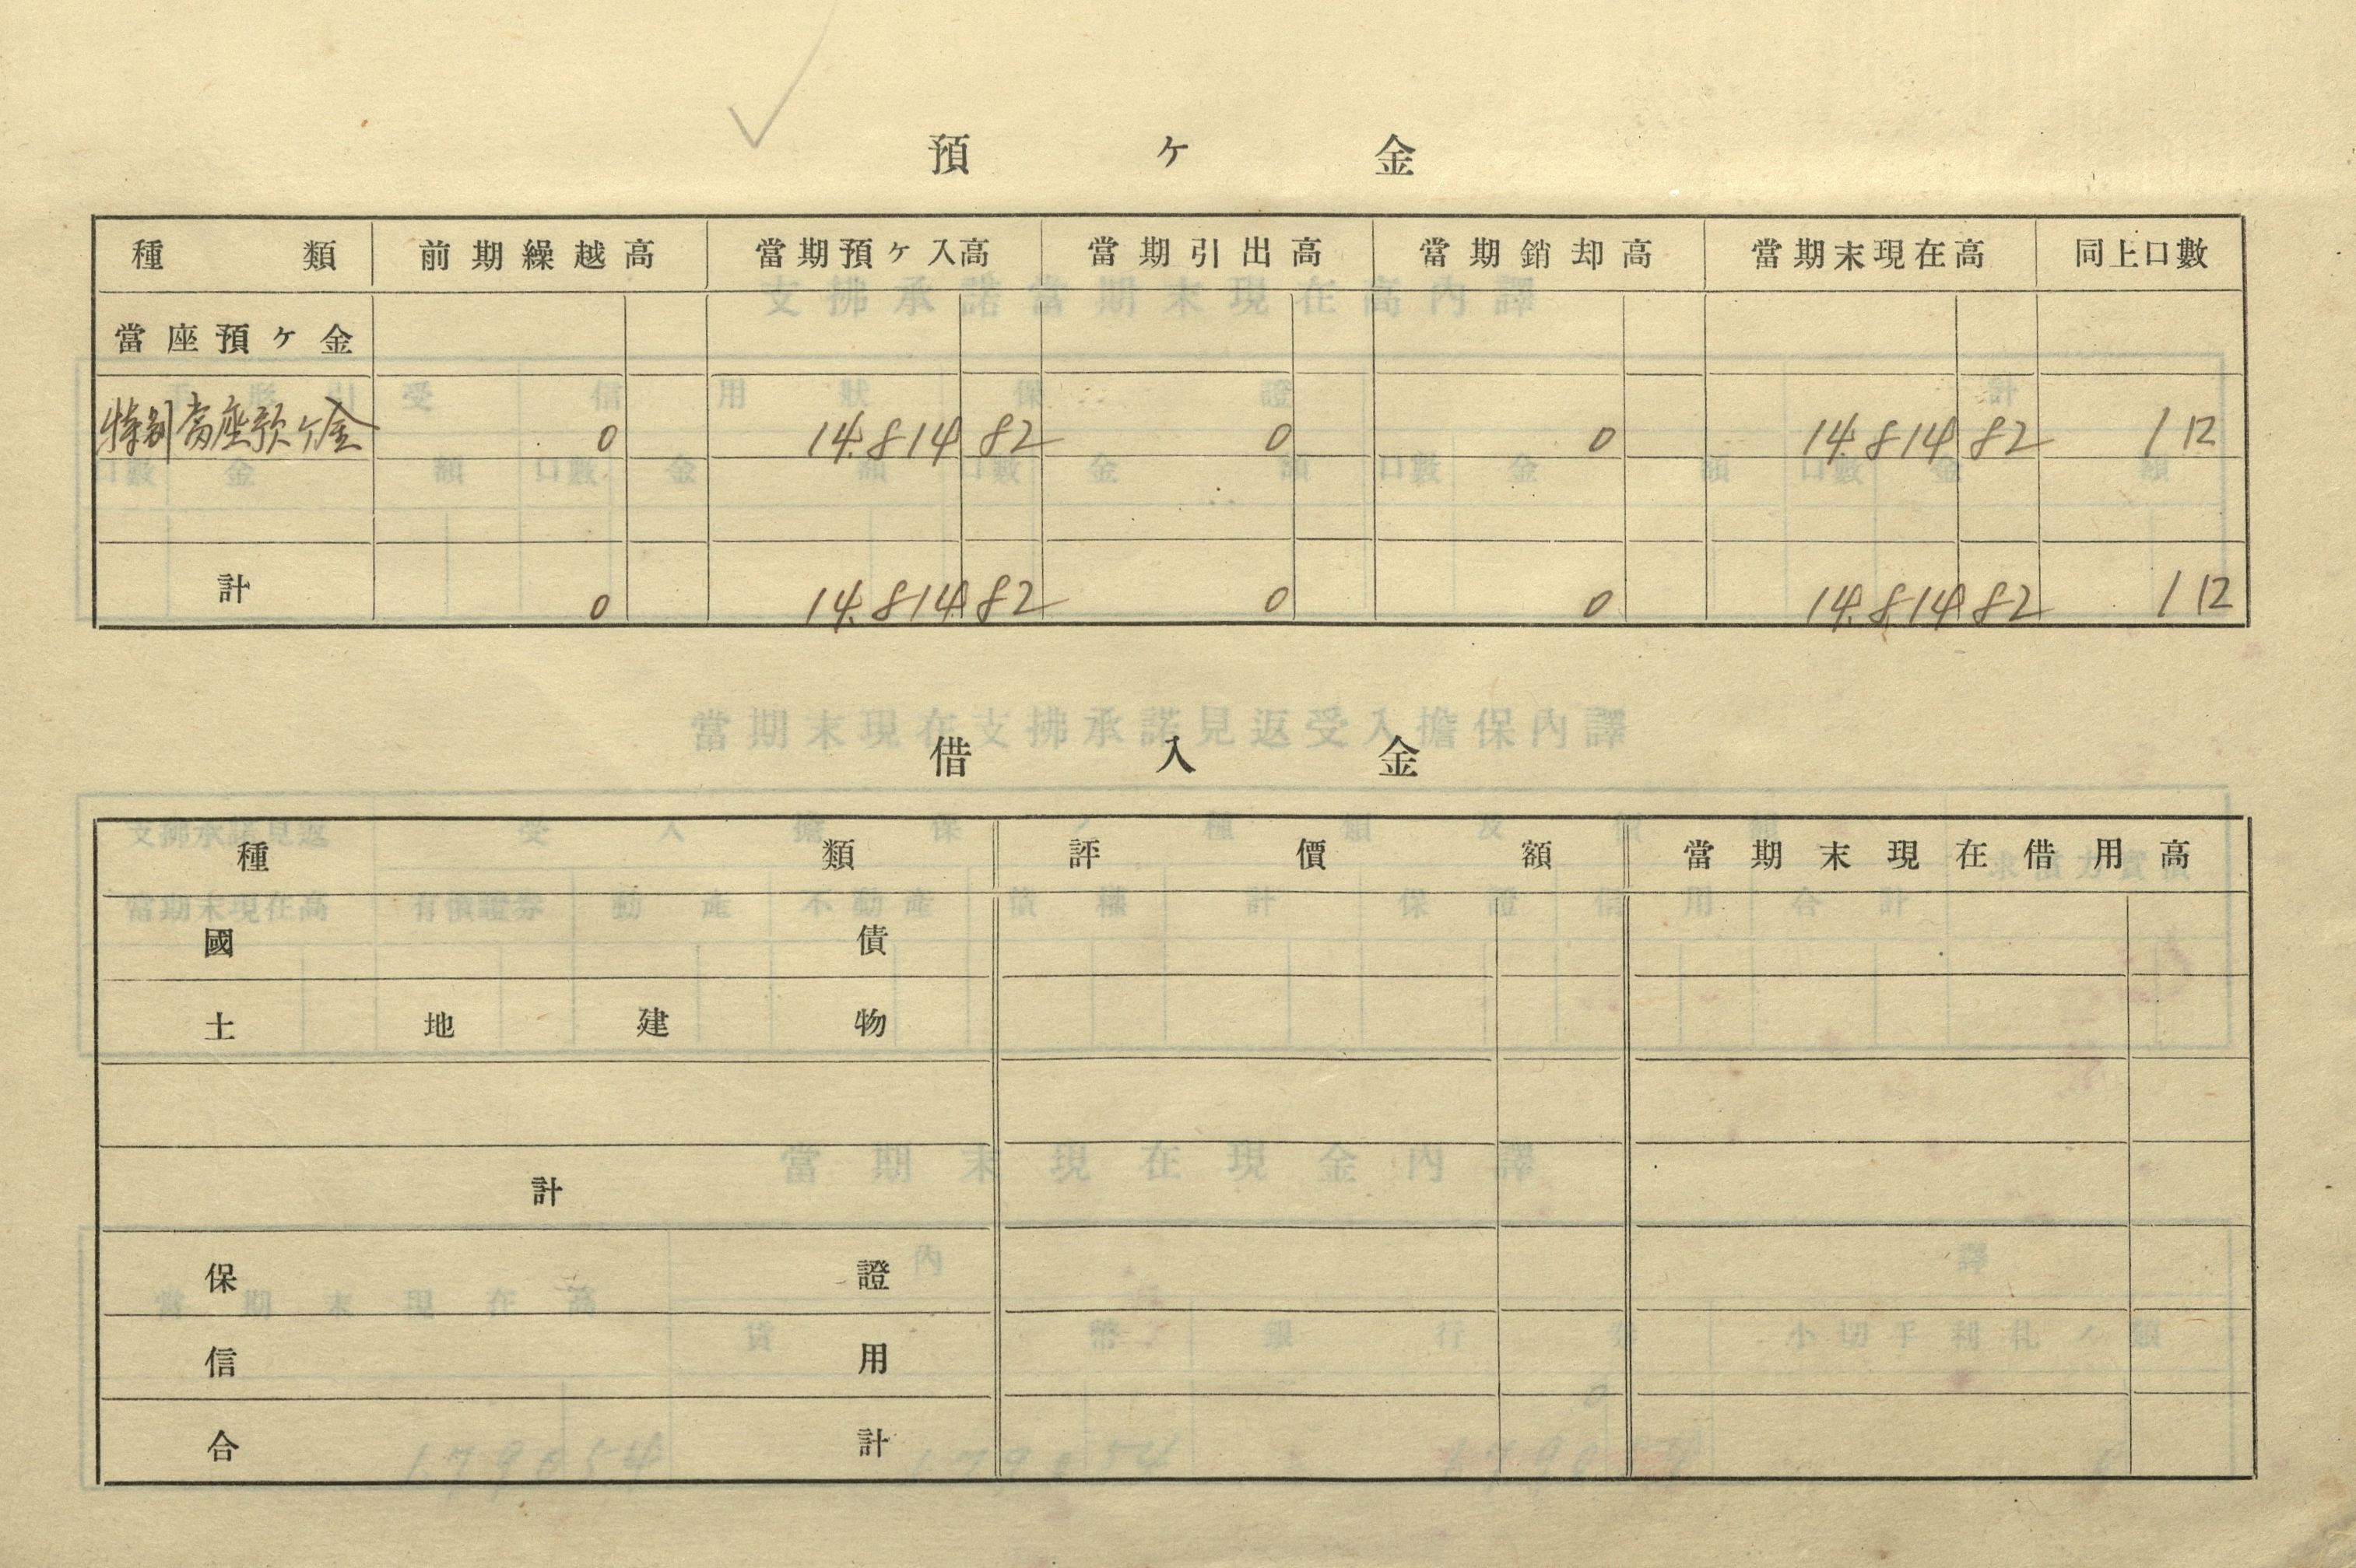 預ケ金
種類 前期繰越高 當期預ケ入高 當期引出高 當期銷却高 當期末現在高 同上口數
當座預ケ金
特別當座預ケ金 0 14.814 82 0 0 14.814 82 1口
計 0 14.814 82 0 0 14.814 82 1口
借入金
種類 評價額 當期末現在借用高
國債
土地建物
計
保證
信用
合計